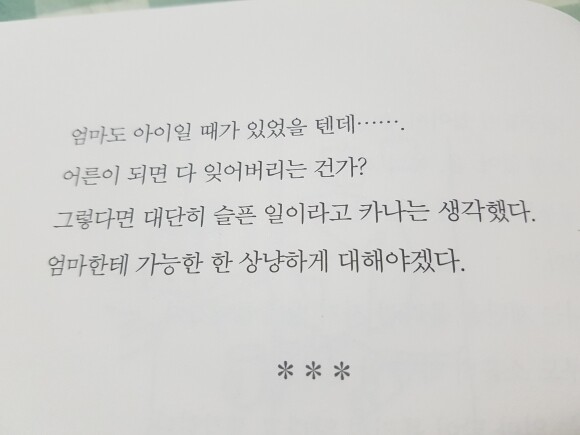 엄마도 아이일 때가 있었을 텐데…….
어른이 되면 다 잊어버리는 건가?
그렇다면 대단히 슬픈 일이라고 카나는 생각했다.
엄마한테 가능한 한 상냥하게 대해야겠다.
***